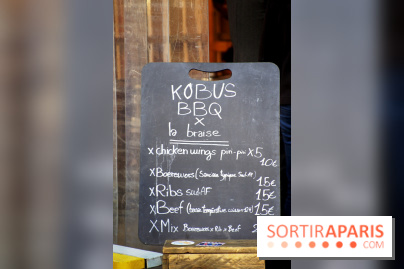 KOBUS
BBQ
X
la braise
x chicken wings piri-piri x5
10€
x Boerewors (Saucisse typique Sud Af)
15€
x Ribs sud AF
15€
x Beef (basse température
15€
x Mix Boerewors x Rib x Beef
SORTIRAPARIS
.COM